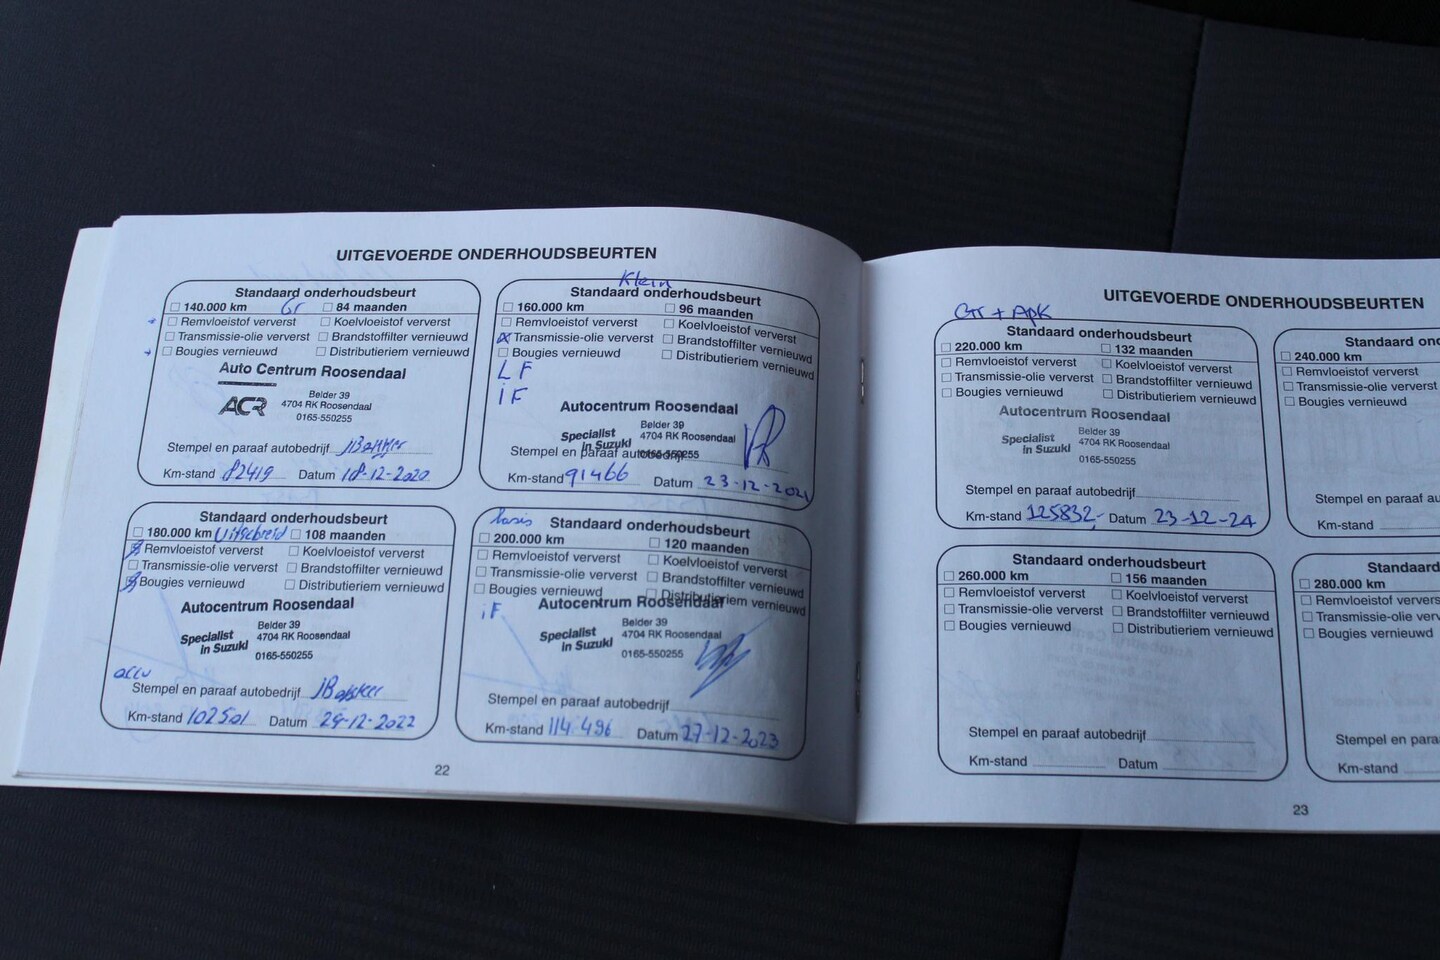 UITGEVOERDE ONDERHOUDSBEURTEN
Standaard onderhoudsbeurt
140.000 km Gr 84 maanden
Remvloeistof ververst Koelvloeistof ververst
Transmissie-olie ververst Brandstoffilter vernieuwd
Bougies vernieuwd Distributieriem vernieuwd
Auto Centrum Roosendaal
ACR
Belder 39
4704 RK Roosendaal
0165-550255
Stempel en paraaf autobedrijf JBakker
Km-stand 82419 Datum 18-12-2020
Klein
Standaard onderhoudsbeurt
160.000 km 96 maanden
Remvloeistof ververst Koelvloeistof ververst
x Transmissie-olie ververst Brandstoffilter vernieuwd
Bougies vernieuwd Distributieriem vernieuwd
LF
iF
Autocentrum Roosendaal
Specialist in Suzuki
Belder 39
4704 RK Roosendaal
0165-550255
Stempel en paraaf autobedrijf
Km-stand 91466 Datum 23-12-2021
Standaard onderhoudsbeurt
180.000 km Uitgebreid 108 maanden
Remvloeistof ververst Koelvloeistof ververst
Transmissie-olie ververst Brandstoffilter vernieuwd
Bougies vernieuwd Distributieriem vernieuwd
Autocentrum Roosendaal
Specialist in Suzuki
Belder 39
4704 RK Roosendaal
0165-550255
accu
Stempel en paraaf autobedrijf JBakker
Km-stand 102501 Datum 29-12-2022
basis
Standaard onderhoudsbeurt
200.000 km 120 maanden
Remvloeistof ververst Koelvloeistof ververst
Transmissie-olie ververst Brandstoffilter vernieuwd
Bougies vernieuwd Distributieriem vernieuwd
iF
Autocentrum Roosendaal
Specialist in Suzuki
Belder 39
4704 RK Roosendaal
0165-550255
Stempel en paraaf autobedrijf
Km-stand 114.496 Datum 27-12-2023
22
UITGEVOERDE ONDERHOUDSBEURTEN
Gr + APK
Standaard onderhoudsbeurt
220.000 km 132 maanden
Remvloeistof ververst Koelvloeistof ververst
Transmissie-olie ververst Brandstoffilter vernieuwd
Bougies vernieuwd Distributieriem vernieuwd
Autocentrum Roosendaal
Specialist in Suzuki
Belder 39
4704 RK Roosendaal
0165-550255
Stempel en paraaf autobedrijf
Km-stand 125832 Datum 23-12-24
Standaard on
240.000 km
Remvloeistof ververst
Transmissie-olie ververst
Bougies vernieuwd
Stempel en paraaf au
Km-stand
Standaard onderhoudsbeurt
260.000 km 156 maanden
Remvloeistof ververst Koelvloeistof ververst
Transmissie-olie ververst Brandstoffilter vernieuwd
Bougies vernieuwd Distributieriem vernieuwd
Stempel en paraaf autobedrijf
Km-stand Datum
Standaard
280.000 km
Remvloeistof ververs
Transmissie-olie ververs
Bougies vernieuwd
Stempel en para
Km-stand
23